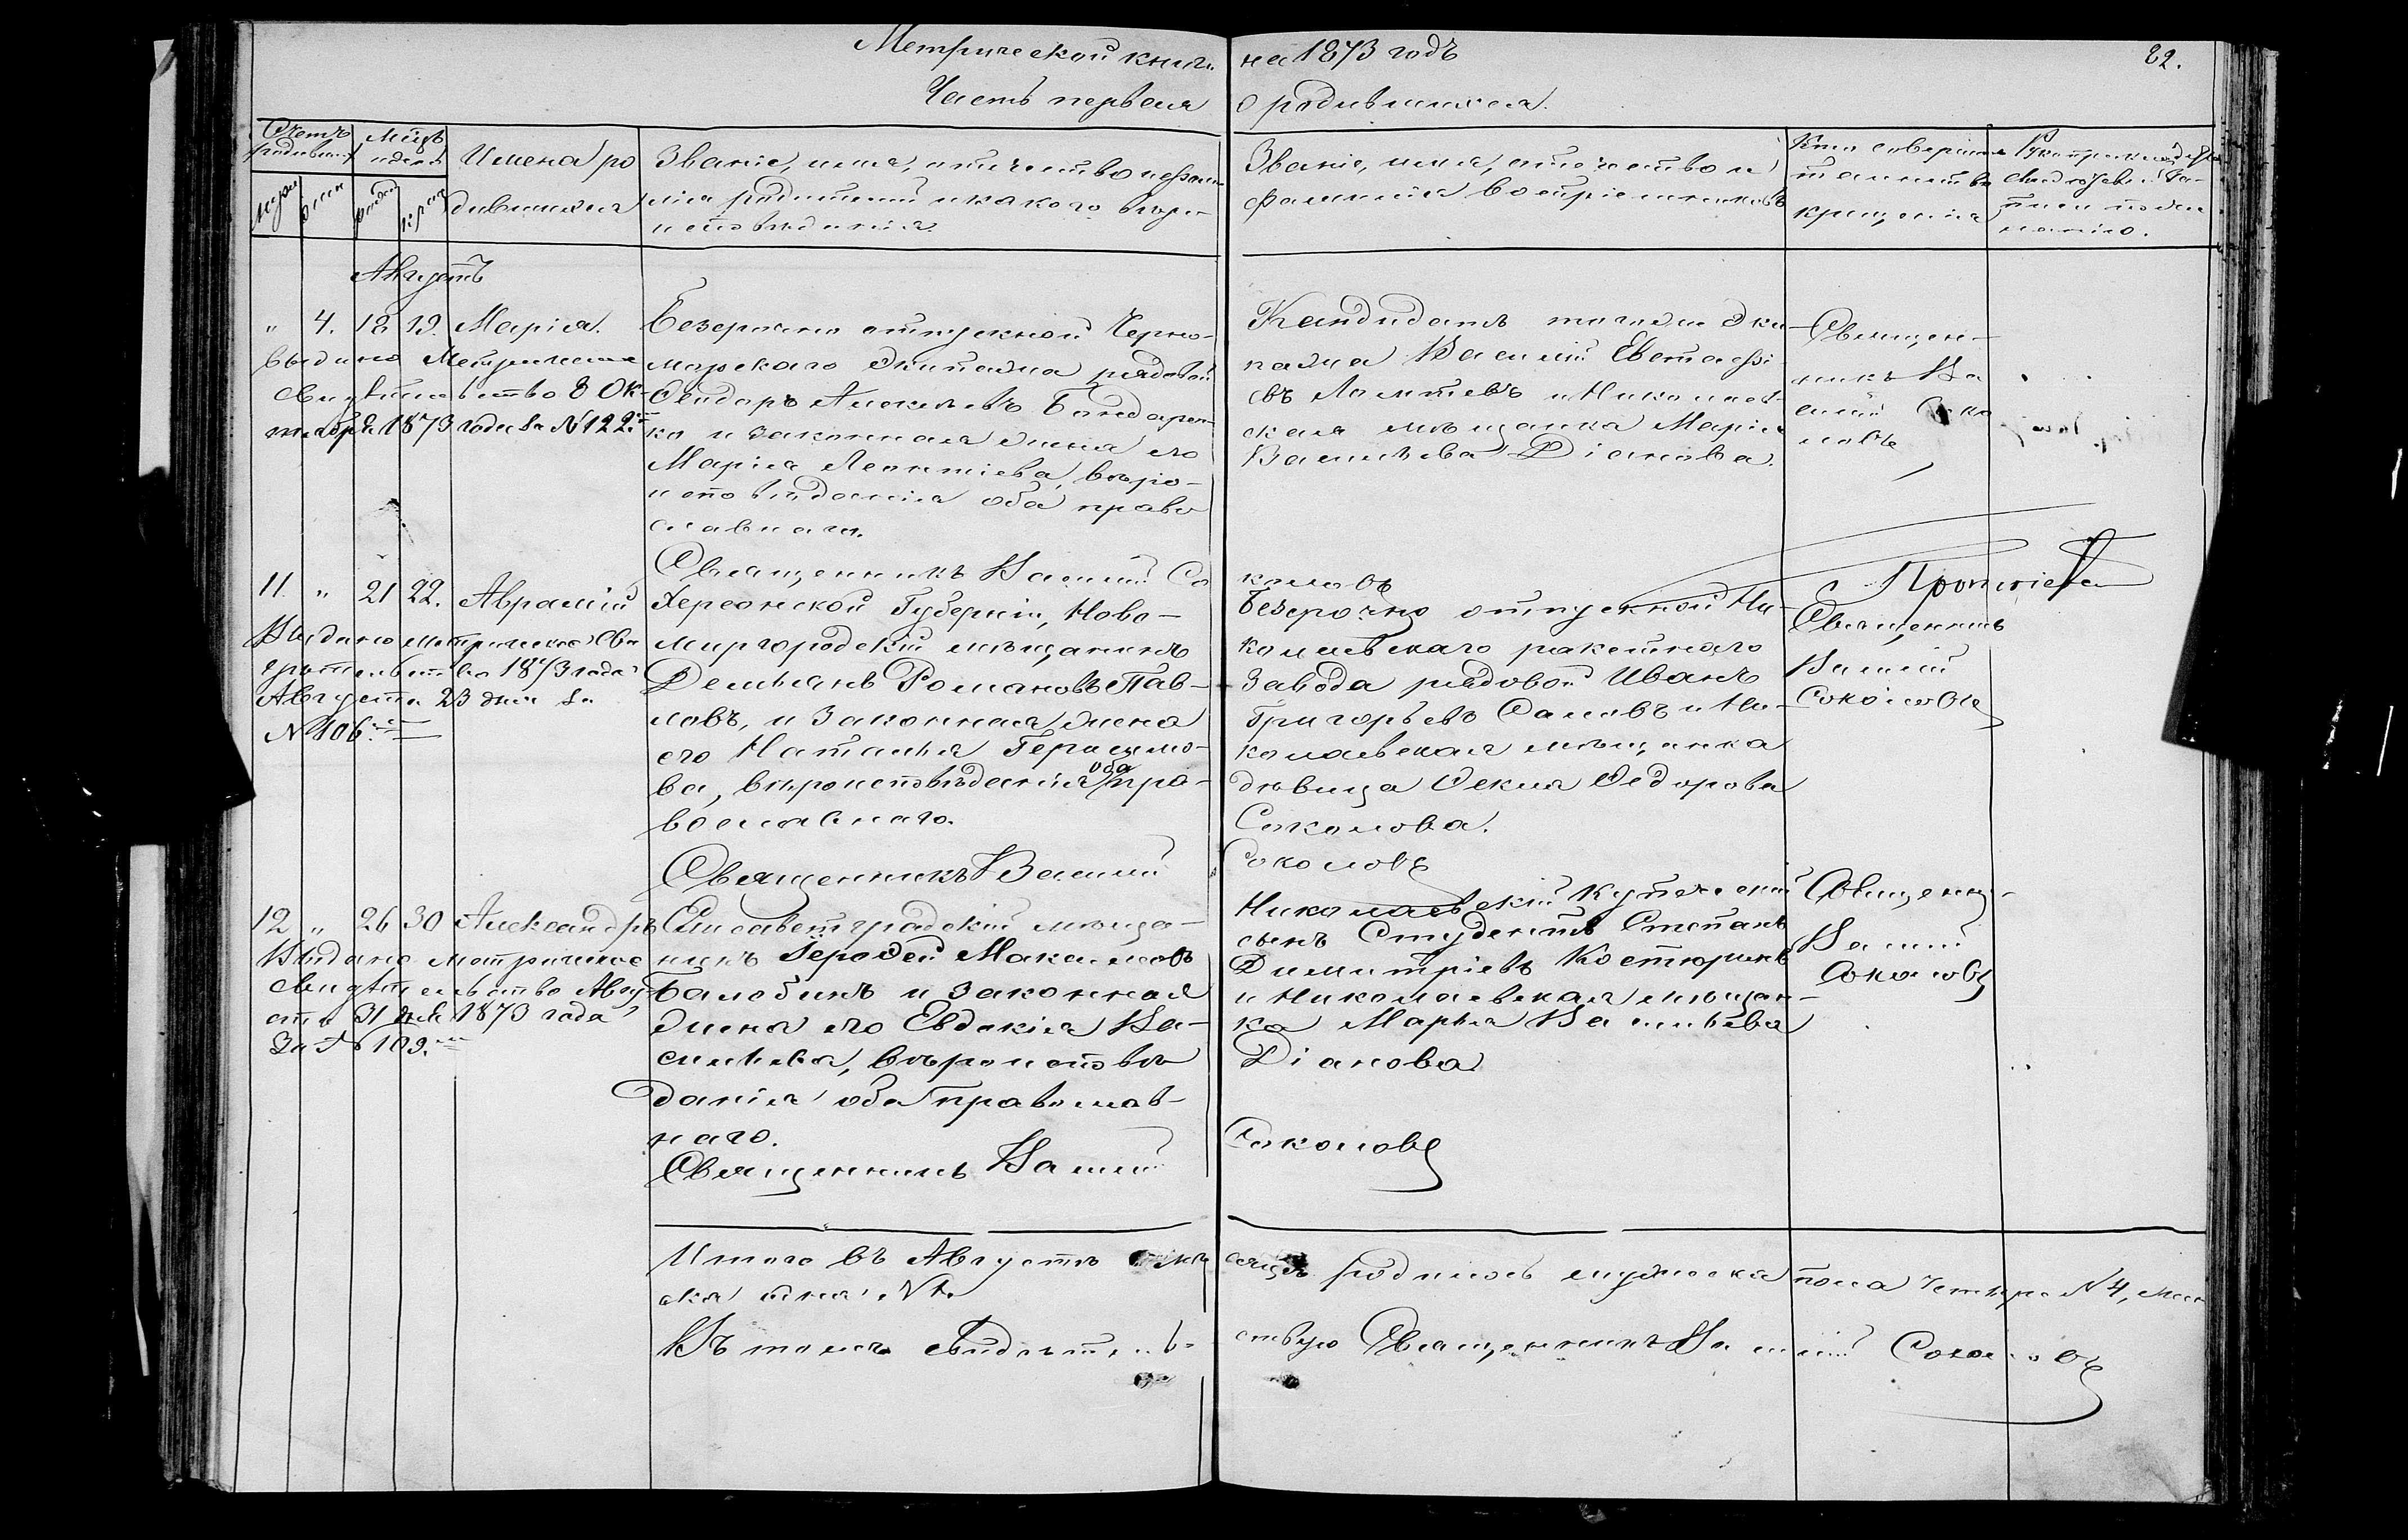 Метрической книги на 1873 годъ 82.
Часть первая о родившихся.
Счетъ родивш. Мѣсяцъ и день Имена ро
дившихся
Званіе, имя, отчество и фами
лія родителей и какого вѣро
исповѣданія
Званіе, имя, отчество и
фамилія воспріемниковъ
Кто совершалъ
таинство
крещенія
Августъ
" 4. 18 19. Марія.
Выдано Метрическое
свидѣтельство 8 Ок-
тября 1873 года за № 122.
Безсрочно отпускной Черно-
морскаго Экипажа рядовой
Ѳеодоръ Алексѣевъ Бондарен-
ко и законная жена его
Марія Леонтіева, вѣро-
исповѣданія оба право
славнаго.
Кандидатъ того же Эки-
пажа Василій Евстафі
евъ Лаптевъ и Николаев-
ская мѣщанка Марія
Васильева Діанова.
Священ-
никъ Ва
силій Соко
ловъ
Священникъ Василій Со
коловъ
11. " 21 22. Аврамій
Выдано метрическое сви
дѣтельство 1873 года
Августа 23 дня за
№ 106.
Херсонской Губерніи, Ново-
миргородскій мѣщанинъ
Демьянъ Романовъ Пав-
ловъ, и законная жена
его Наталья Герасимо-
ва, вѣроисповѣданія оба пра-
вославнаго.
Безсрочно отпускной Ни-
колаевскаго ракетнаго
завода рядовой Иванъ
Григорьевъ Саловъ и Ни-
колаевская мѣщанка
дѣвица Ѳекла Ѳедорова
Соколова.
Священникъ
Василій
Соколовъ
Священникъ Василій
Соколовъ
12 " 26 30 Александръ
Выдано метрическое
свидѣтельство Авгу-
ста 31 дня 1873 года
За № 109.
Елисаветградскій мѣща-
нинъ Іеродей Макаловъ
Балобинъ и законная
жена его Евдокія Ва-
сильева, вѣроисповѣ
данія оба православ-
наго.
Николаевскій Купеческій
сынъ Студентъ Степанъ
Димитріевъ Костюринъ
и Николаевская мѣщан-
ка Марья Васильева
Діанова
Священ-
Василій
Соколовъ
Священникъ Василій
Соколовъ
Итого въ Августѣ мѣ сяцѣ родилось мужеска пола четыре № 4, жен
ска одна № 1.
Въ томъ свидѣтель ствую Священникъ Василій Соколовъ